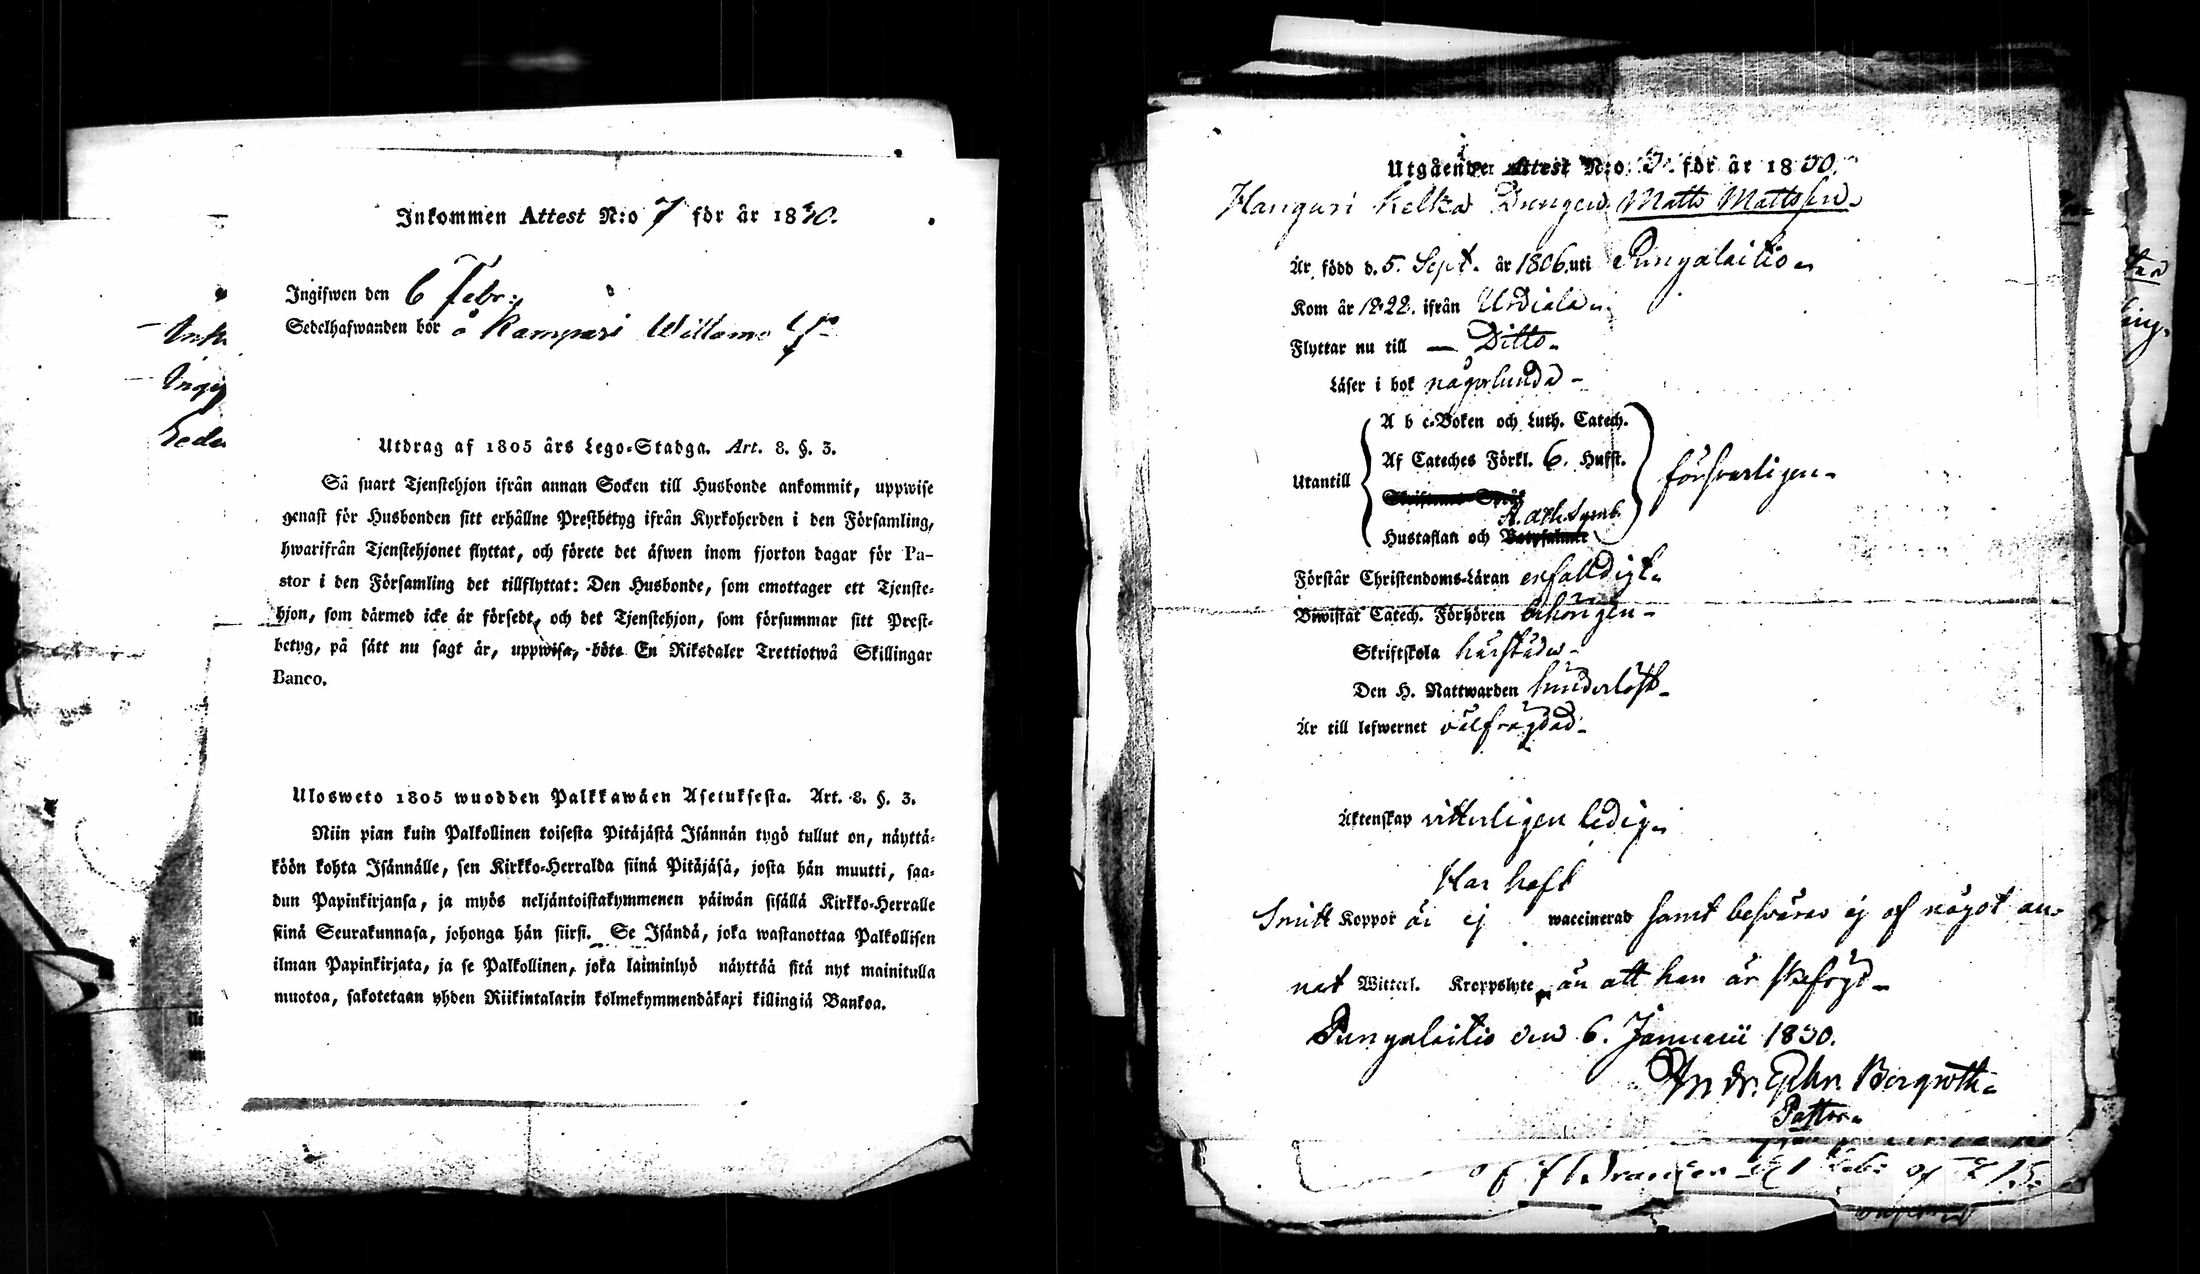 Inkommen Attest N:o 7 för år 1830.
Ingifwen den 6 Febr:
Sedelhafwanden bor å Kampari Willamo
Utdrag af 1805 års Lego-Stadga. Art. 8. §. 3.
Så snart Tjenstehjon ifrån annan Socken till Husbonde ankommit, uppwise
genast för Husbonden sitt erhållne Prestbetyg ifrån Kyrkoherden i den Församling,
hwarifrån Tjenstehjonet flyttat, och förete det äfwen inom fjorton dagar för Pa-
stor i den Församling det tillflyttat: Den Husbonde, som emottager ett Tjenste-
hjon, som därmed icke är försedt, och det Tjenstehjon, som försummar sitt Prest-
betyg, på sätt nu sagt är, uppwisa, böte En Riksdaler Trettiotwå Skillingar
Banco.
Ulosweto 1805 wuodden Palkkawäen Asetuksesta. Art. 8. §. 3.
Niin pian kuin Palkollinen toisesta Pitäjästä Isännän tygö tullut on, näyttä-
köön kohta Isännälle, sen Kirkko-Herralda siinä Pitäjäsä, josta hän muutti, saa-
dun Papinkirjansa, ja myös neljäntoistakymmenen päiwän sisällä Kirkko-Herralle
siinä Seurakunnasa, johonga hän siirsi. Se Isändä, joka wastanottaa Palkollisen
ilman Papinkirjata, ja se Palkollinen, joka laiminlyö näyttää sitä nyt mainitulla
muotoa, sakotetaan yhden Riikintalarin kolmekymmendäkaxi killingiä Bankoa.
Utgående Attest N:o 3. för år 1830.
Hanguri Kelka Drengen Matts Mattsson
Är född d. 5. Sept. år 1806. uti Pungalaitio
Kom år 1822. ifrån Urdiala
Flyttar nu till — Ditto
Läser i bok någorlunda
A b c-Boken och Luth. Catech.
Af Cateches Förkl. 6. Hufst.
Utantill försvarligen
A. Ath. Symb.
Hustaflan och
Förstår Christendoms-Läran enfalldigt
Biwistat Catech. Förhören behörigen
Skriftskola härstädes
Den H. Nattwarden hinderlöst
Är till lefwernet välfrägdad
Äktenskap vitterligen ledig
Har haft
Smitt Koppor är ej waccinerad samt besväras ej af något an-
nat Witterl. Kroppslyte än att han är skefögd
Pungalaitio den 6. Januarii 1830.
Andr. Ephr. Bergroth
Pastor